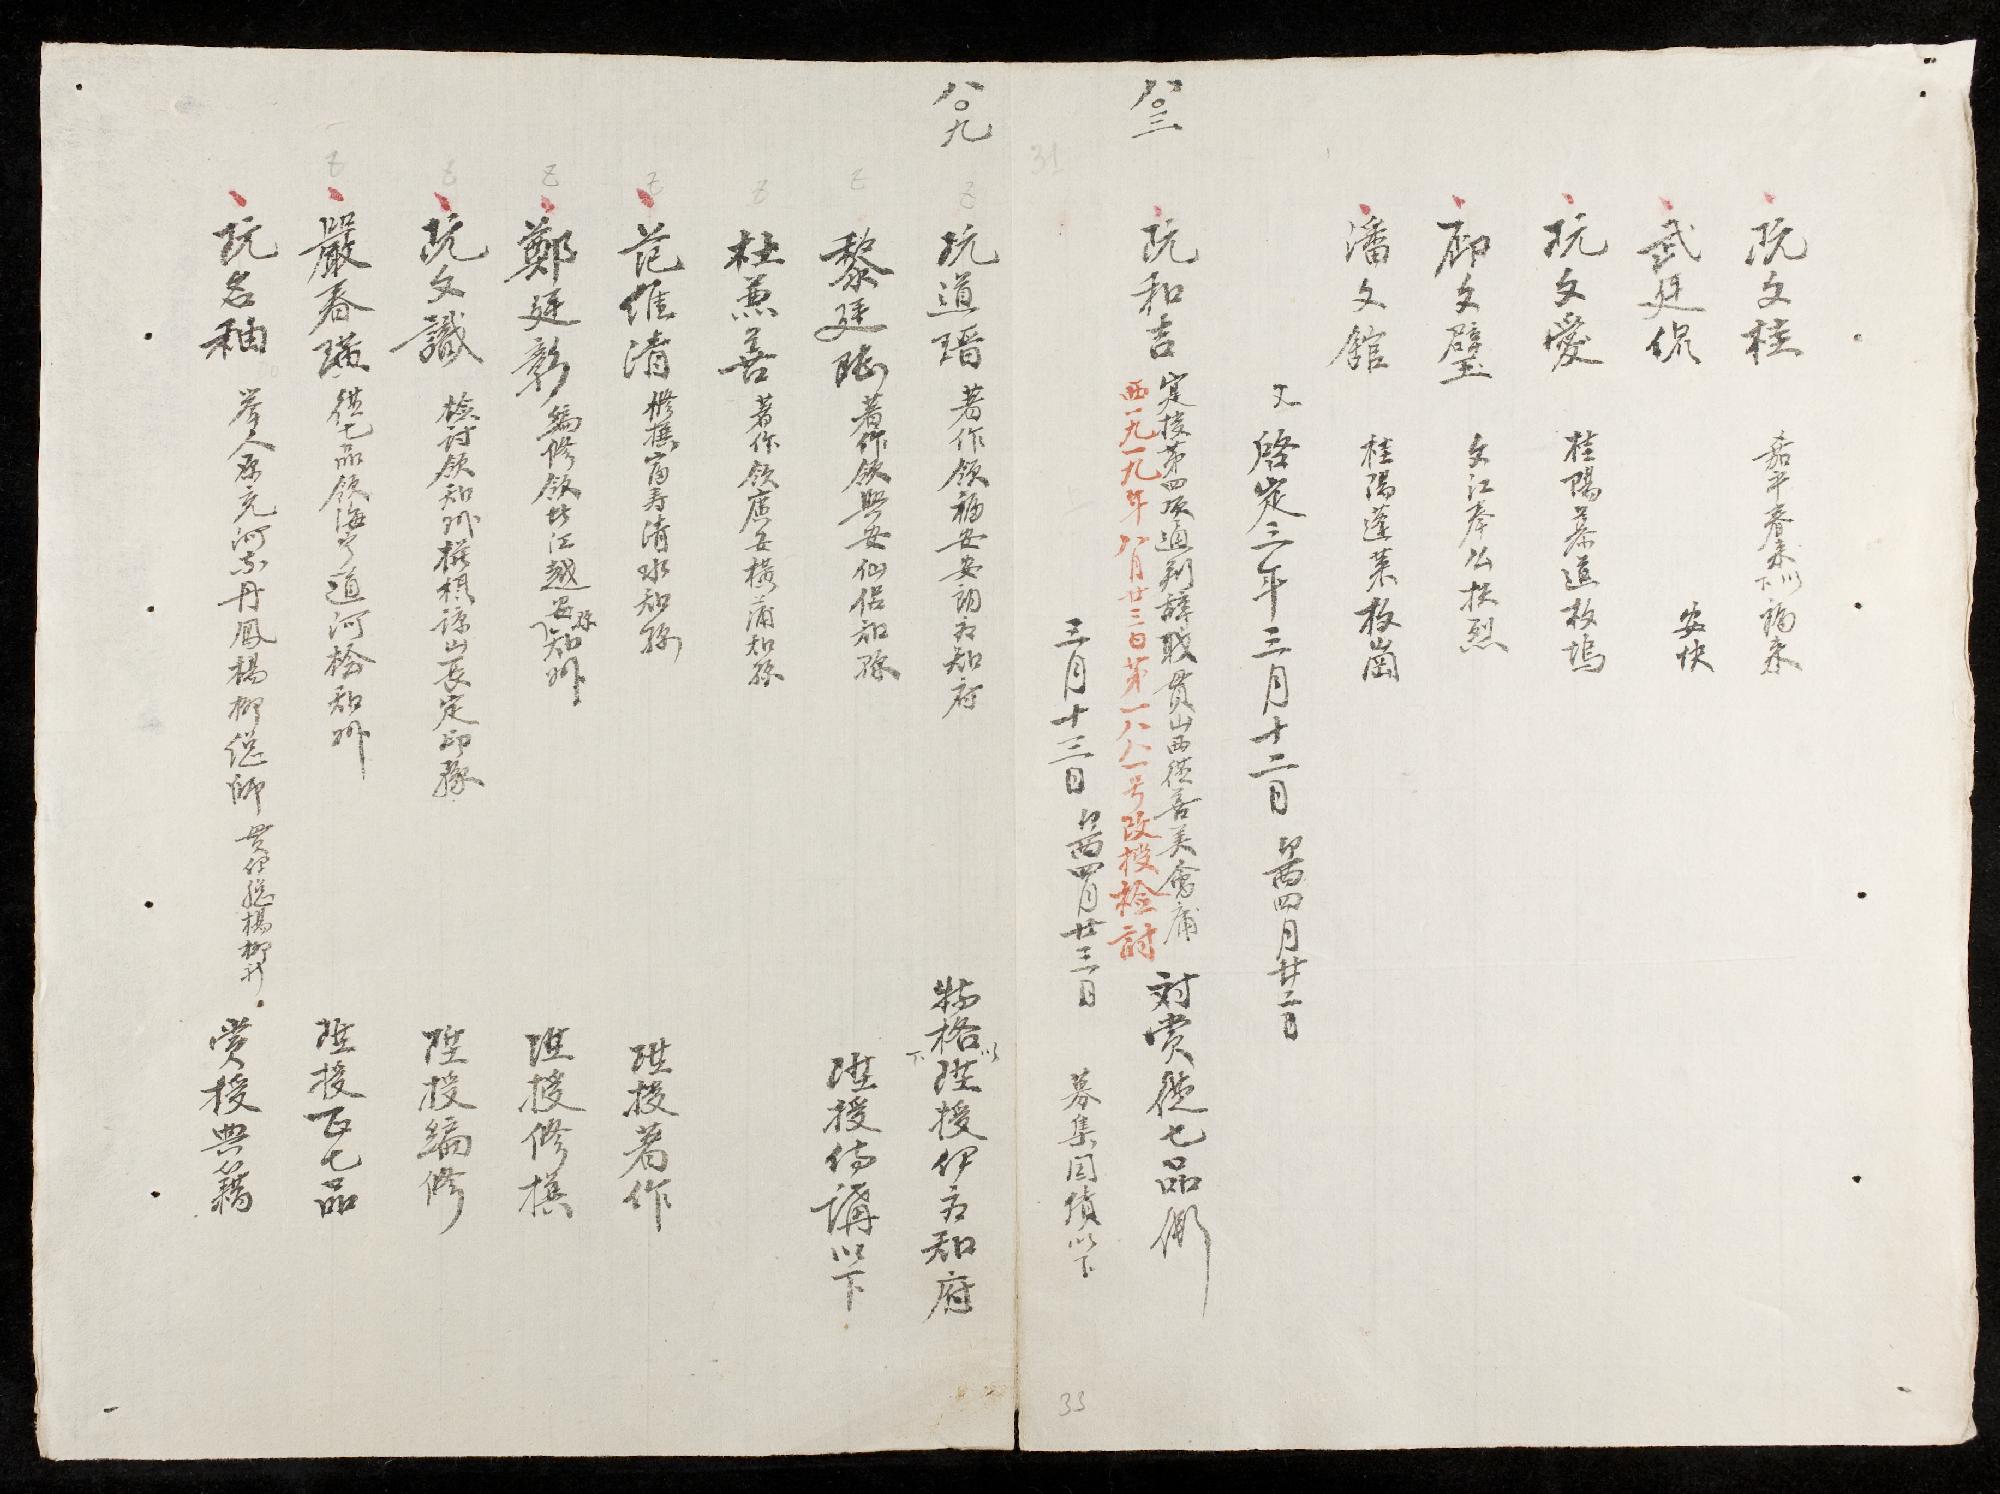 阮文桂 嘉平春來以下論來
武廷侃 安快
阮文愛 桂陽慕道枚塢
文璧 文江奉公扶烈
潘文館 桂陽蓬萊枚崗
文 啓定三年三月十二日 印西四月廿二日
八〇三
阮和吉 定授第四項通判辞職貫山西從善美會庯 対賞從七品
西一九一九年八月廿三日第一八八一号改授檢討
三月十三日 印西四月廿三日 募集国債以下
31
33
八〇九
阮道 著作領福安安朗知府 特格以下陞授伊知府
黎廷 著作領興安仙侶知縣 陞授侍講以下
杜兼善 著作領廣安橫蒲知縣
范維清 修撰富寿清水知縣 陞授著作
鄭廷彰 編修領北江越安縣知州 陞授修撰
阮文識 檢討領知州權領諒山長定印篆 陞授編修
嚴春 從七品領海寧道河檜知州 陞授正七品
阮名 举人原充河東丹鳳楊柳總師 貫伊總楊柳社 賞授典籍